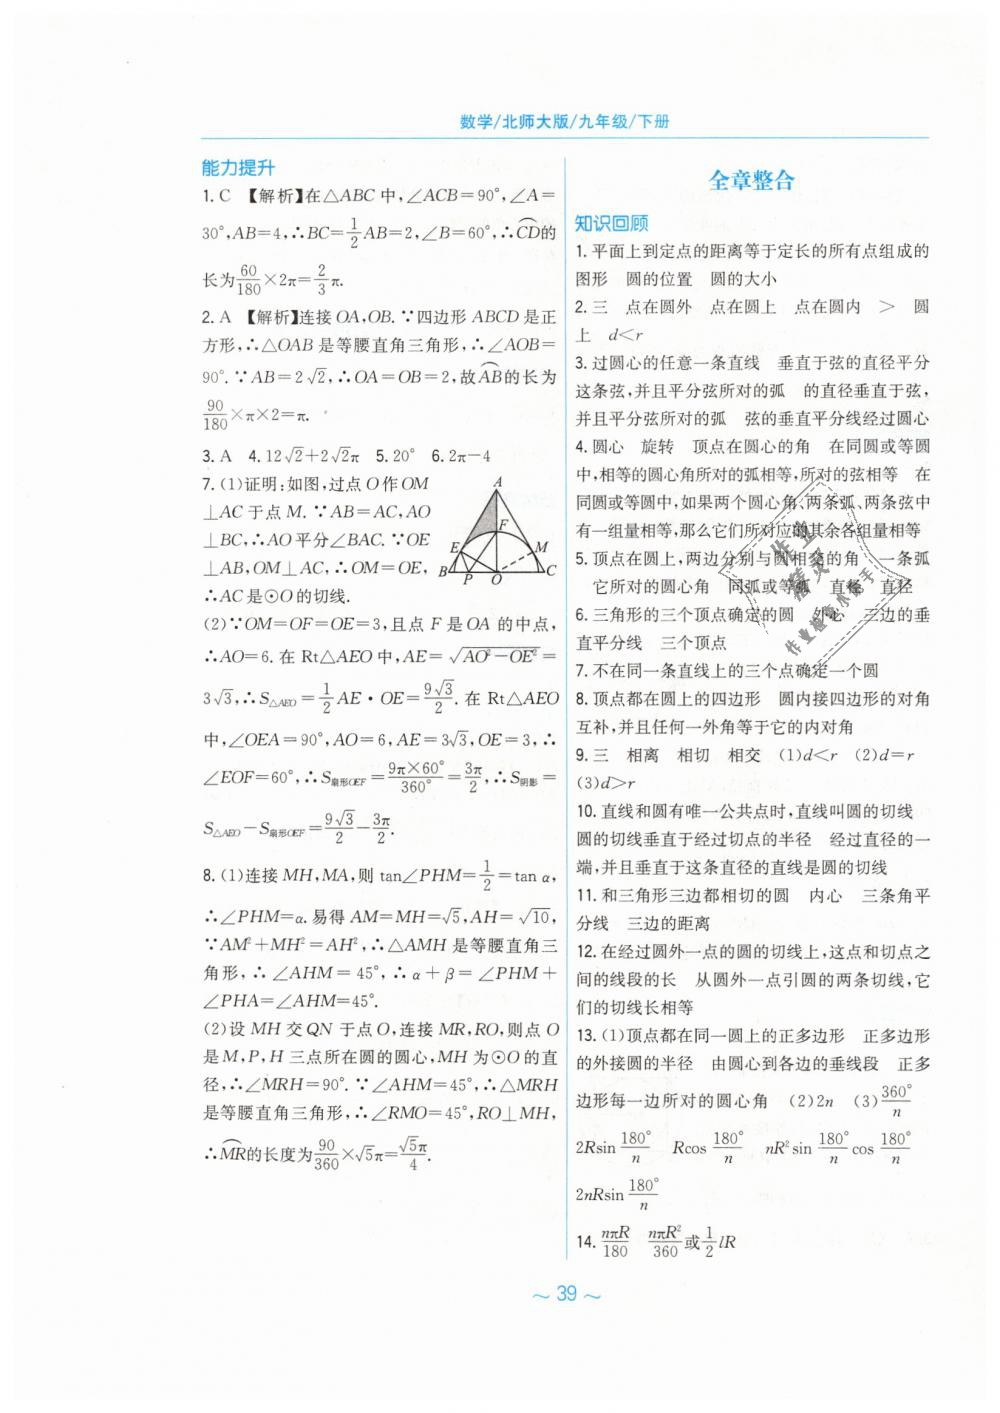 数学/北师大版/九年级/下册
能力提升
1. C 【解析】在△ABC 中,∠ACB=90°,∠A=
30°,AB=4,∴BC=1/2AB=2,∠B=60°,∴⌒CD的
长为60/180×2π=2/3π.
2. A 【解析】连接 OA,OB. ∵四边形 ABCD 是正
方形,∴△OAB 是等腰直角三角形,∴∠AOB=
90°. ∵AB=2√2,∴OA=OB=2,故⌒AB的长为
90/180×π×2=π.
3. A 4. 12√2+2√2π 5. 20° 6. 2π-4
7. (1)证明:如图,过点 O 作 OM
⊥AC 于点 M. ∵AB=AC,AO
⊥BC,∴AO 平分∠BAC. ∵OE
⊥AB,OM⊥AC,∴OM=OE,
∴AC 是⊙O 的切线.
A
F
E
M
B
P
O
C
(2)∵OM=OF=OE=3,且点 F 是 OA 的中点,
∴AO=6. 在 Rt△AEO 中,AE=√(AO²-OE²)=
3√3,∴S△AEO=1/2AE·OE=9√3/2. 在 Rt△AEO
中,∠OEA=90°,AO=6,AE=3√3,OE=3,∴
∠EOF=60°,∴S扇形OEF=9π×60°/360°=3π/2,∴S阴影=
S△AEO-S扇形OEF=9√3/2-3π/2.
8. (1)连接 MH,MA,则 tan∠PHM=1/2=tan α,
∴∠PHM=α. 易得 AM=MH=√5,AH=√10,
∵AM²+MH²=AH²,∴△AMH 是等腰直角三
角形,∴∠AHM=45°,∴α+β=∠PHM+
∠PHA=∠AHM=45°.
(2)设 MH 交 QN 于点 O,连接 MR,RO,则点 O
是 M,P,H 三点所在圆的圆心,MH 为⊙O 的直
径,∴∠MRH=90°. ∵∠AHM=45°,∴△MRH
是等腰直角三角形,∴∠RMO=45°,RO⊥MH,
∴⌒MR的长度为90/360×√5π=√5π/4.
全章整合
知识回顾
1. 平面上到定点的距离等于定长的所有点组成的
图形 圆的位置 圆的大小
2. 三 点在圆外 点在圆上 点在圆内 > 圆
上 d<r
3. 过圆心的任意一条直线 垂直于弦的直径平分
这条弦,并且平分弦所对的弧 的直径垂直于弦,
并且平分弦所对的弧 弦的垂直平分线经过圆心
4. 圆心 旋转 顶点在圆心的角 在同圆或等圆
中,相等的圆心角所对的弧相等,所对的弦相等 在
同圆或等圆中,如果两个圆心角、两条弧、两条弦中
有一组量相等,那么它们所对应的其余各组量相等
5. 顶点在圆上,两边分别与圆相交的角 一条弧
它所对的圆心角 同弧或等弧 直径 直径
6. 三角形的三个顶点确定的圆 外心 三边的垂
直平分线 三个顶点
7. 不在同一条直线上的三个点确定一个圆
8. 顶点都在圆上的四边形 圆内接四边形的对角
互补,并且任何一外角等于它的内对角
9. 三 相离 相切 相交 (1)d<r (2)d=r
(3)d>r
10. 直线和圆有唯一公共点时,直线叫圆的切线
圆的切线垂直于经过切点的半径 经过直径的一
端,并且垂直于这条直径的直线是圆的切线
11. 和三角形三边都相切的圆 内心 三条角平
分线 三边的距离
12. 在经过圆外一点的圆的切线上,这点和切点之
间的线段的长 从圆外一点引圆的两条切线,它
们的切线长相等
13. (1)顶点都在同一圆上的正多边形 正多边形
的外接圆的半径 由圆心到各边的垂线段 正多
边形每一边所对的圆心角 (2)2n (3)360°/n
2Rsin 180°/n Rcos 180°/n nR²sin 180°/n cos 180°/n
2nRsin 180°/n
14. nπR/180 nπR²/360 或 1/2 lR
作业
精灵
作业检查小助手
~ 39 ~